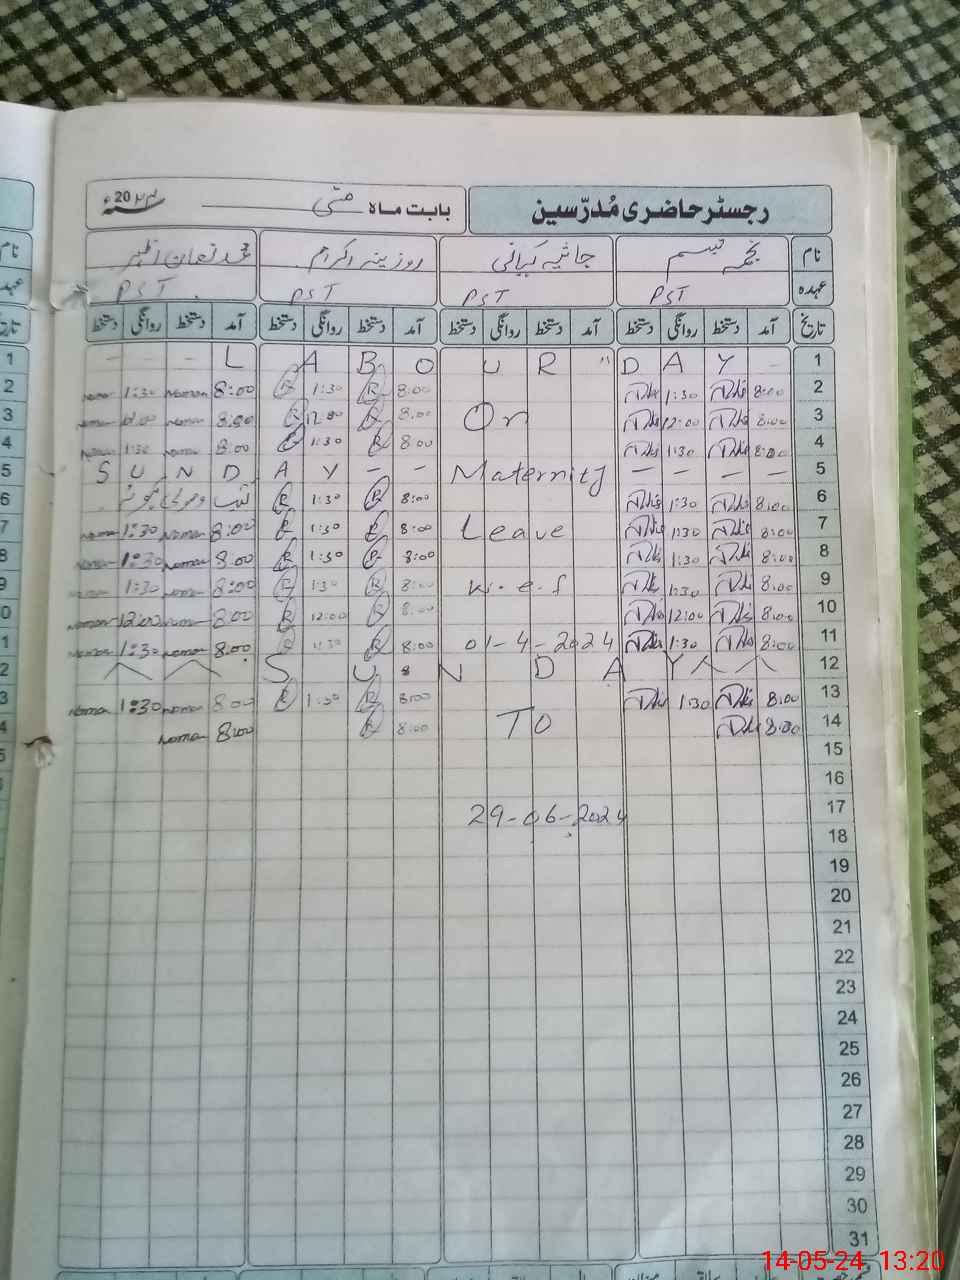 رجسٹر حاضری مُدرّسین
بابت ماہ مئی سنہ 20۲۴ء
نام نجمہ تبسم جاثیہ کیانی روزینہ اکرام محمد نعمان اظہر
عہدہ PST PST PST PST
تاریخ آمد دستخط روانگی دستخط آمد دستخط روانگی دستخط آمد دستخط روانگی دستخط آمد دستخط روانگی دستخط
- - - L A B O U R " D A Y - 1
noman 1:30 noman 8:00 R 1:30 R 8:00 1:30 8:00 2
noman 12:00 noman 8:00 R 12:00 R 8:00 On 12:00 8:00 3
noman 1:30 noman 8:00 R 1:30 R 8:00 1:30 8:00 4
S U N D A Y - - Maternity - - - - 5
R 1:30 R 8:00 1:30 8:00 6
noman 1:30 noman 8:00 R 1:30 R 8:00 Leave 1:30 8:00 7
noman 1:30 noman 8:00 R 1:30 R 8:00 1:30 8:00 8
1:30 noman 8:00 R 1:30 R 8:00 w.e.f 1:30 8:00 9
noman 12:00 noman 8:00 R 12:00 R 8:00 12:00 8:00 10
noman 1:30 noman 8:00 R 1:30 R 8:00 01-4-2024 1:30 8:00 11
S U N D A Y 12
noman 1:30 noman 8:00 R 1:30 R 8:00 1:30 8:00 13
noman 8:00 R 8:00 TO 8:00 14
15
16
29-06-2024 17
18
19
20
21
22
23
24
25
26
27
28
29
30
31
14-05-24 13:20